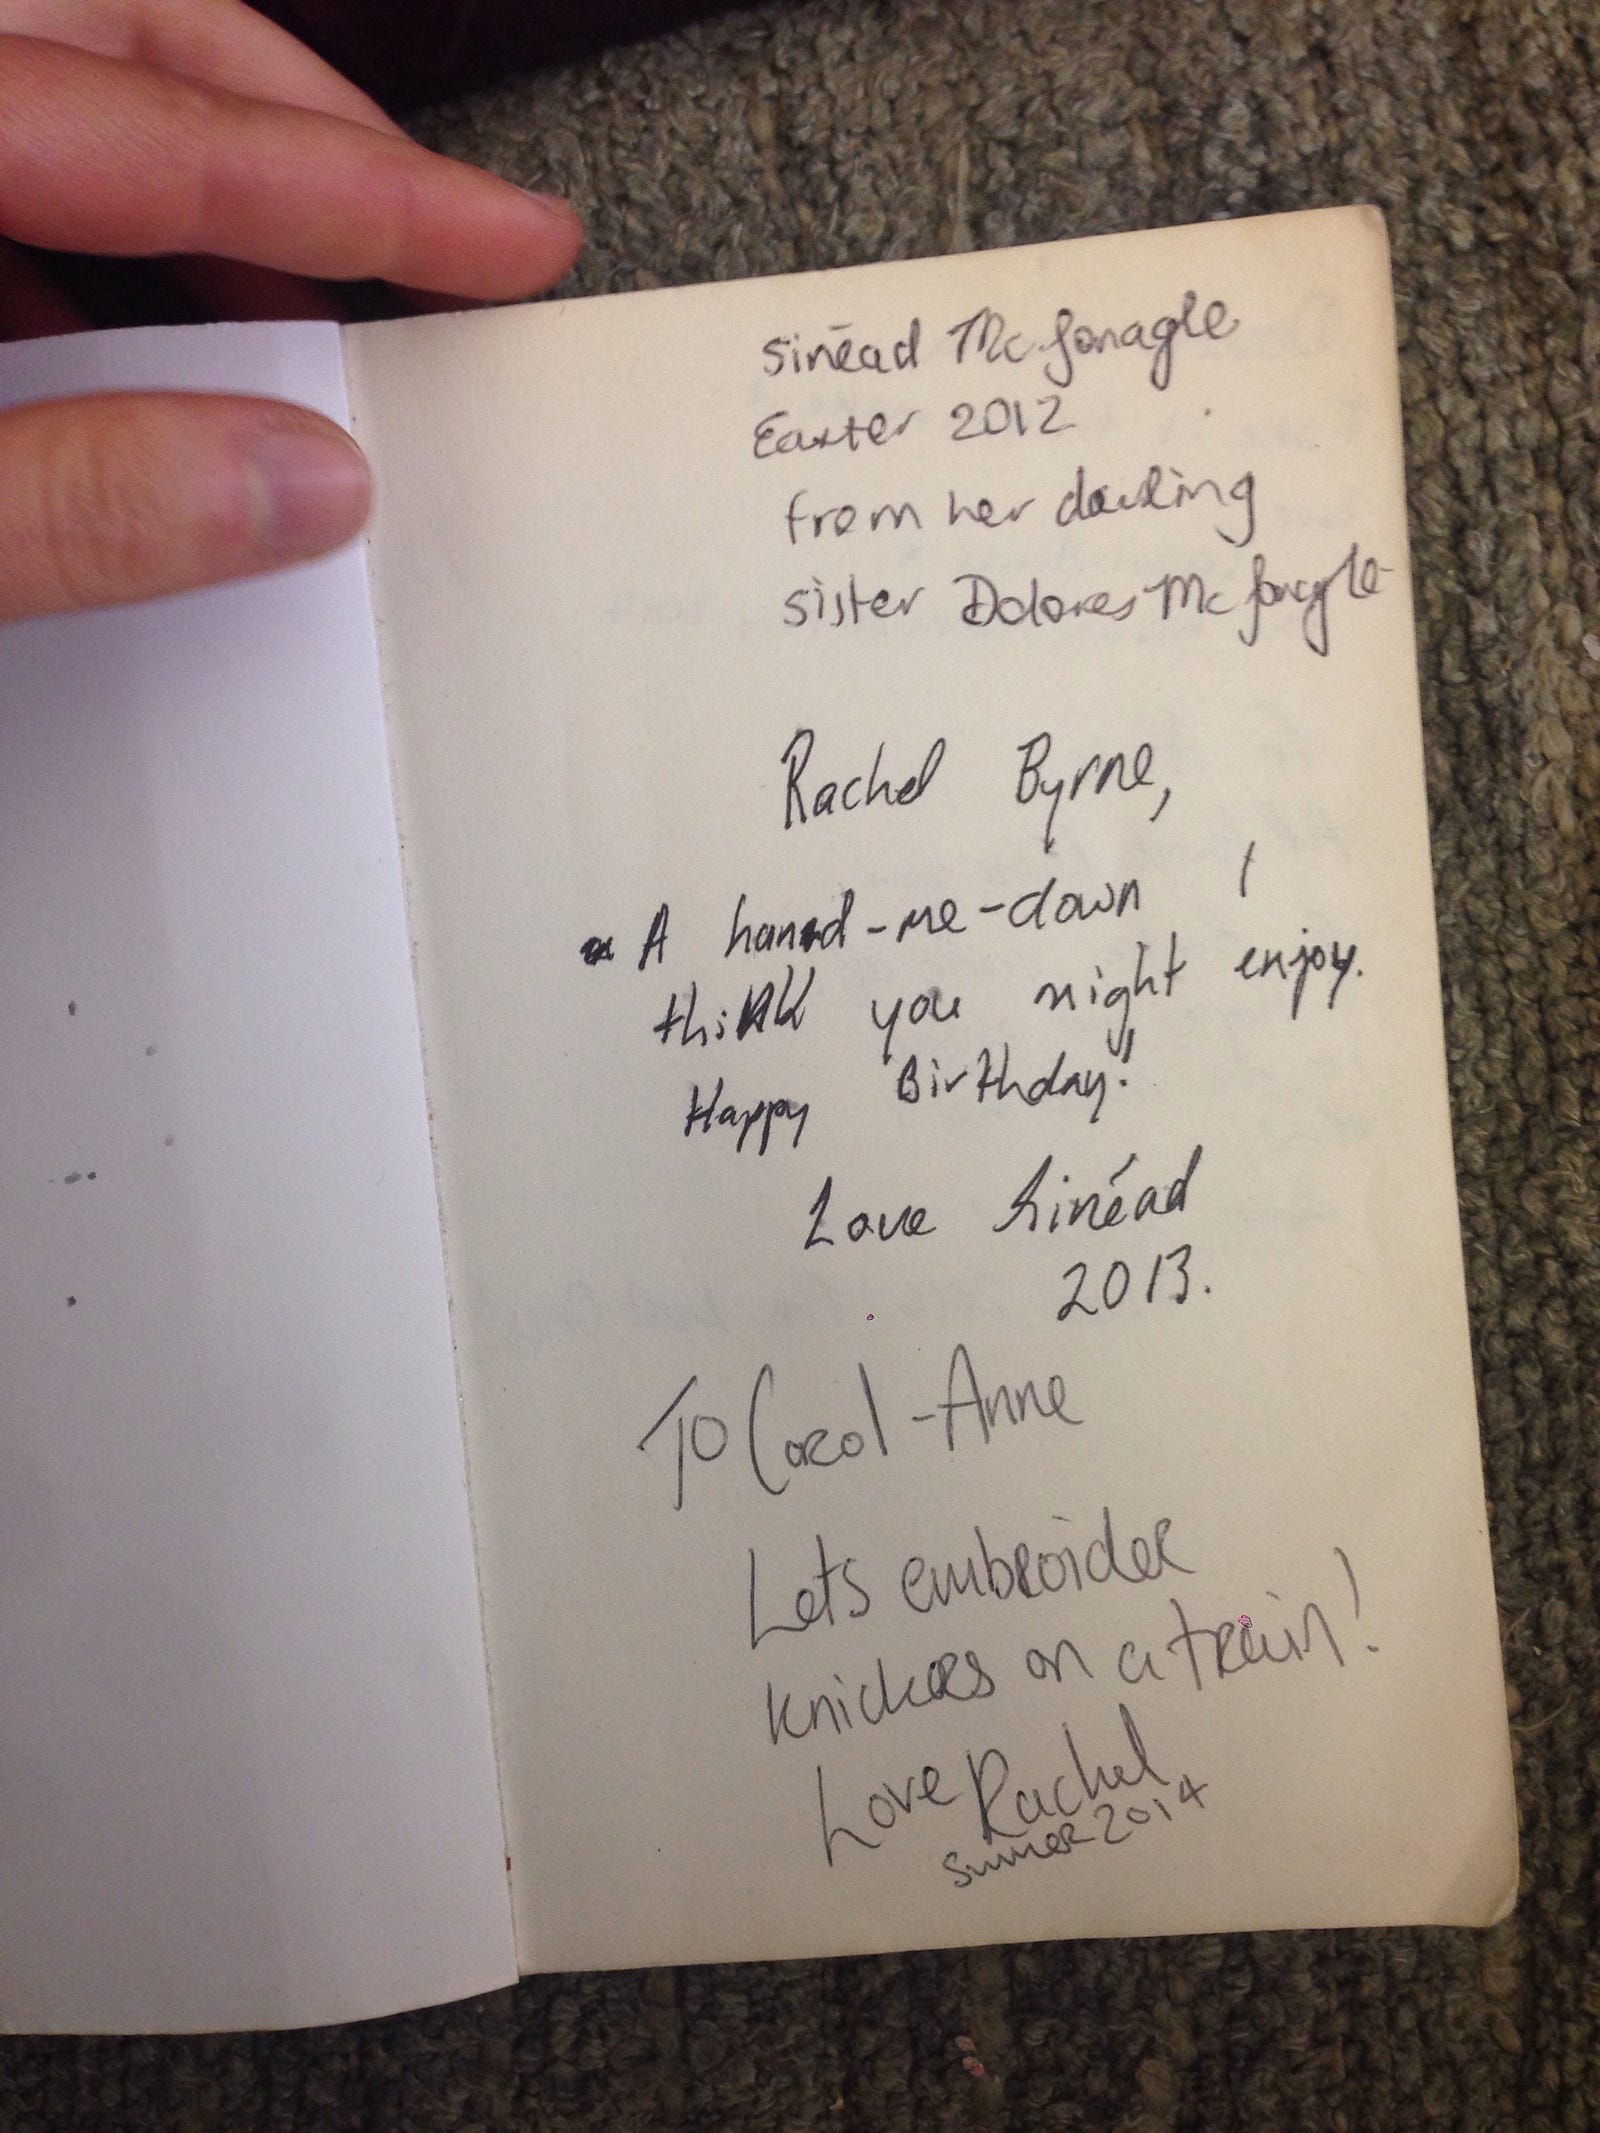 Sinéad McGonagle
Easter 2012
from her darling
sister Dolores McGonagle
Rachel Byrne,
A hand-me-down I
think you might enjoy.
Happy Birthday!
Love Sinéad
2013.
To Carol-Anne
Lets embroider
knickers on a train!
Love Rachel
Summer 2014